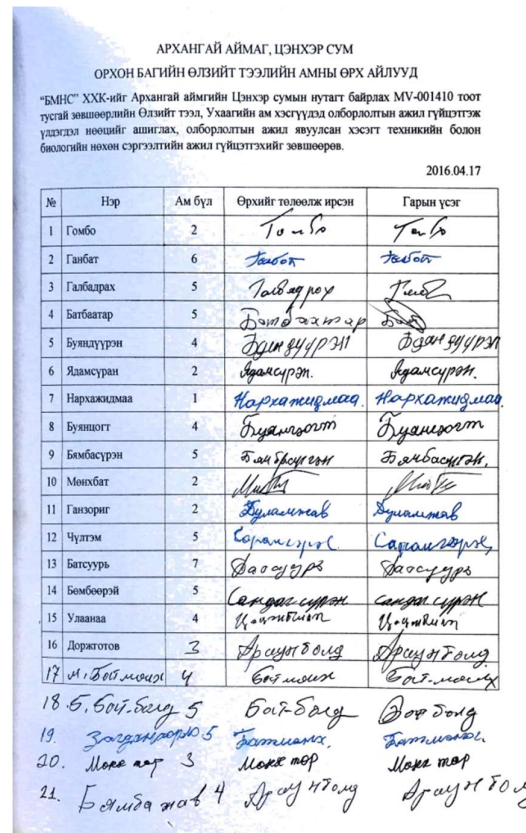 АРХАНГАЙ АЙМАГ, ЦЭНХЭР СУМ
ОРХОН БАГИЙН ӨЛЗИЙТ ТЭЭЛИЙН АМНЫ ӨРХ АЙЛУУД
“БМНС” ХХК-ийг Архангай аймгийн Цэнхэр сумын нутагт байрлах MV-001410 тоот
тусгай зөвшөөрлийн Өлзийт тээл, Ухаагийн ам хэсгүүдэд олборлолтын ажил гүйцэтгэж
үлдэгдэл нөөцийг ашиглах, олборлолтын ажил явуулсан хэсэгт техникийн болон
биологийн нөхөн сэргээлтийн ажил гүйцэтгэхийг зөвшөөрөв.
2016.04.17
№ Нэр Ам бүл Өрхийг төлөөлж ирсэн Гарын үсэг
1 Гомбо 2 Гомбо Гомбо
2 Ганбат 6 Ганбат Ганбат
3 Галбадрах 5 Галбадрах
4 Батбаатар 5
5 Буяндүүрэн 4
6 Ядамсүран 2 Ядамсүрэн. Ядамсүрэн.
7 Нархажидмаа 1 Нархажидмаа. Нархажидмаа.
8 Буянцогт 4 Буянцогт Буянцогт
9 Бямбасүрэн 5 Бямбасүрэн,
10 Мөнхбат 2
11 Ганзориг 2 Дуламжав Дуламжав
12 Чүлтэм 5 Сарангэрэл. Сарангэрэл,
13 Батсуурь 7 Батсуурь Батсуурь
14 Бөмбөөрэй 5 Сандагсүрэн Сандагсүрэн
15 Улаанаа 4
16 Доржготов 3 Ариунболд Ариунболд
17 4
18. Б. Бат-болд 5 Бат-болд Батболд
19. 5
20. 3
21. Бямбажав 4 Ариунболд Ариунболд